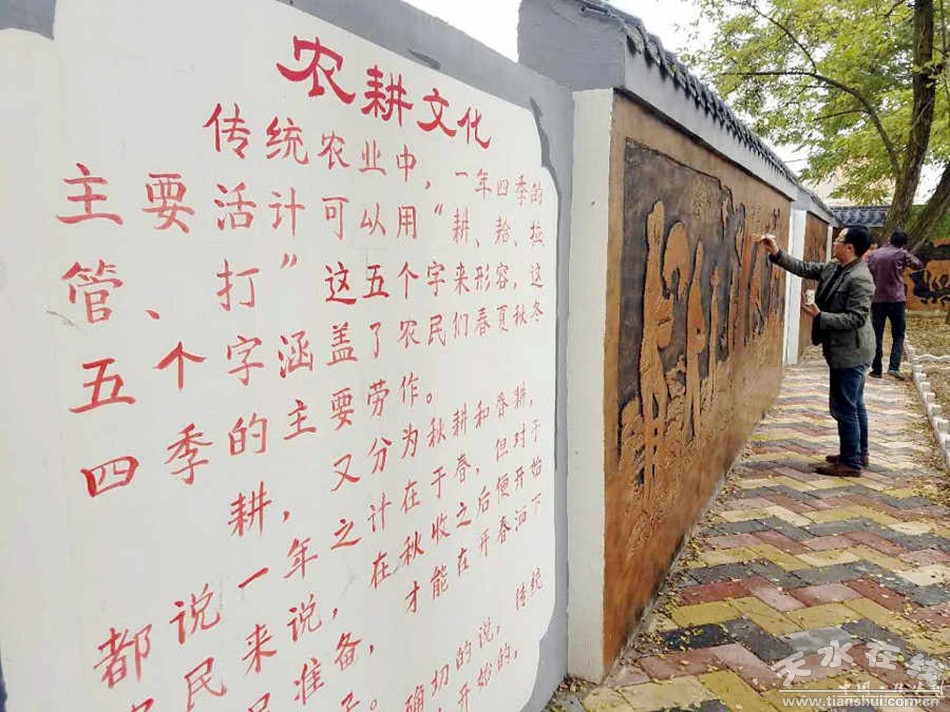 农耕文化
传统农业中，一年四季的
主要活计可以用“耕、耠、拉
管、打”这五个字来形容，这
五个字涵盖了农民们春夏秋冬
四季的主要劳作。
耕，又分为秋耕和春耕，
都说一年之计在于春，但对于
农民来说，在秋收之后便开始
准备，才能在开春洒下
传统
确切的说，
开始的，
天水在线
www.tianshui.com.cn